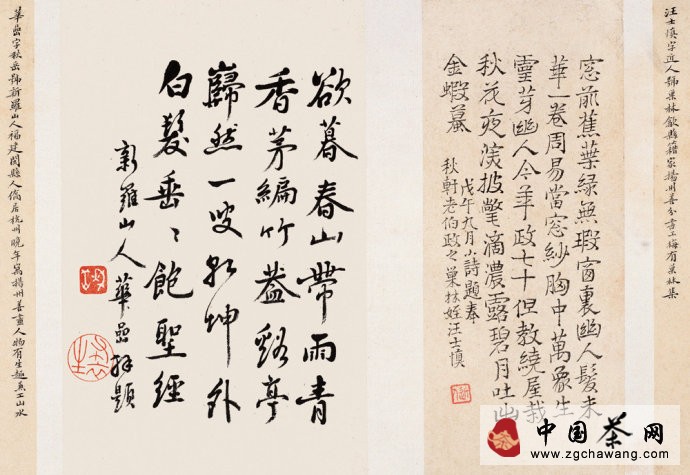 汪士慎字近人號巢林歙縣籍家揚州善分書工梅有巢林集
窓前蕉葉綠無瑕窗裏幽人髮未
華一卷周易當窓紗胸中萬象生
靈芽幽人今年政七十但教繞屋栽
秋花夜深披氅滴濃露碧月吐出
金蝦蟇
戊午九月小詩題奉
秋軒老伯政之 巢林姪汪士慎
欲暮春山帶雨青
香茅編竹葢谿亭
巋然一叟乾坤外
白髮垂〻飽聖經
新羅山人華嵒拜題
華嵒字秋岳號新羅山人福建閩縣人僑居杭州晚年寓揚州善畫人物有生趣兼工山水
中国茶网
www.zgchawang.com